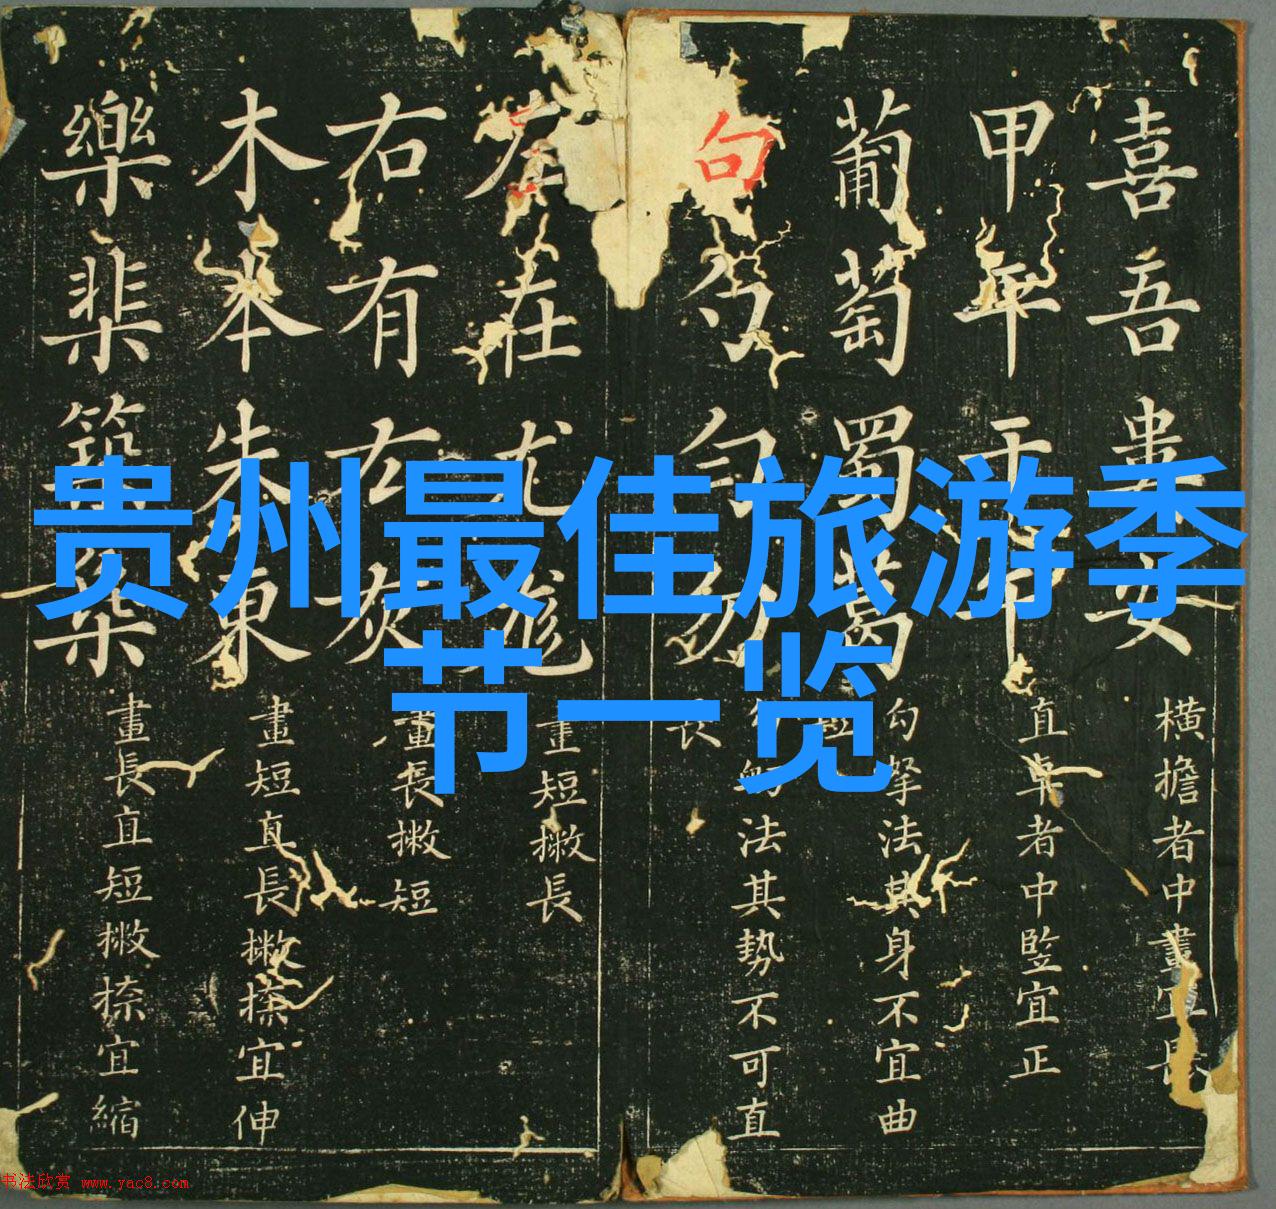 贵州最佳旅游季
节一览
喜吾安
横擔者中畫宜長
甲平干中
直卓者中竪宜正
葡萄蜀葛
勾拏法其身不宜曲
句勺勻勿
法其勢不可直
左在尤尨
畫短撇長
右有灰
畫長撇短
木本朱東
畫短直長撇捺宜伸
樂棐築
畫長直短撇捺宜縮
书法欣赏 www.yac8.com